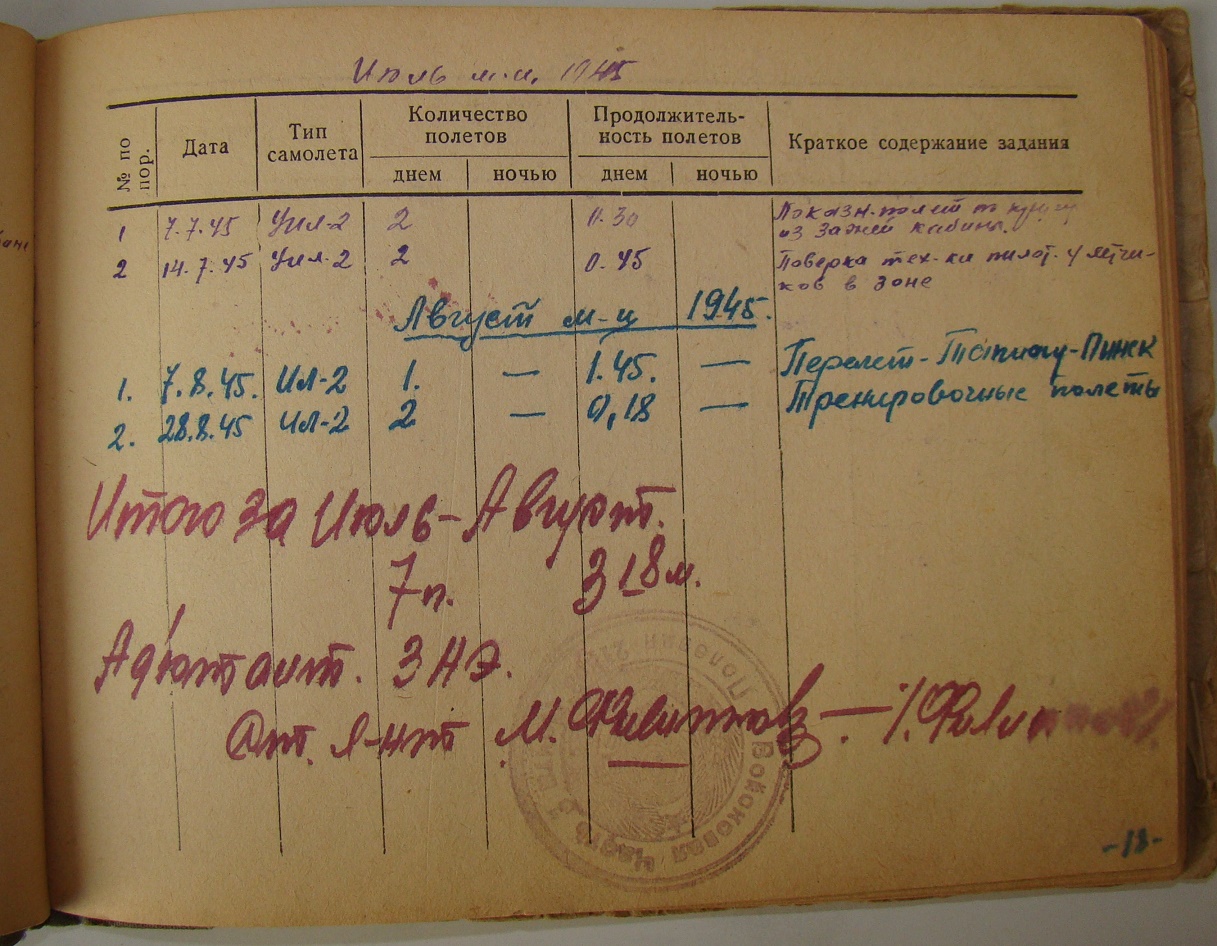 Июль м-ц. 1945
№ по пор.
Дата
Тип самолета
Количество полетов
Продолжитель-
ность полетов
Краткое содержание задания
днем ночью днем ночью
1 7.7.45 Уил-2 2 0.30 Показн. полет по кругу
из задней кабины.
2 14.7.45 Уил-2 2 0.45 Поверка тех-ки пилот. у летчи-
ков в зоне
Август м-ц 1945.
1. 7.8.45. Ил-2 1. — 1.45. — Перелет - Пинск
2. 28.8.45 Ил-2 2 — 0,18 — Тренировочные полеты
Итого за Июль-Август.
7п. 3 18м.
Ад'ютант. 3 АЭ.
Ст. л-нт М. Филиппов — /.Филиппов/
Войсковая часть
Полевая
-18-